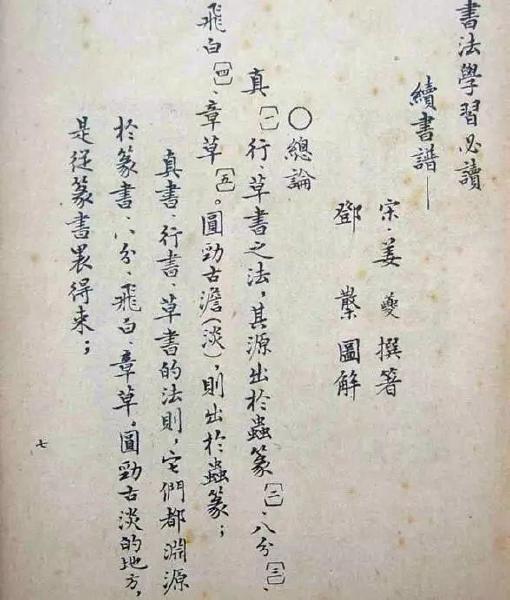 書法學習必讀
續書譜——
宋·姜夔撰著
鄧散圖解
○總論
真〔一〕行、草書之法，其源出於蟲篆〔二〕、八分〔三〕、
飛白〔四〕、章草〔五〕。圓勁古澹（淡），則出於蟲篆；
真書、行書、草書的法則，它們都淵源
於篆書、八分、飛白、章草。圓勁古淡的地方，
是從篆書裏得來；
七